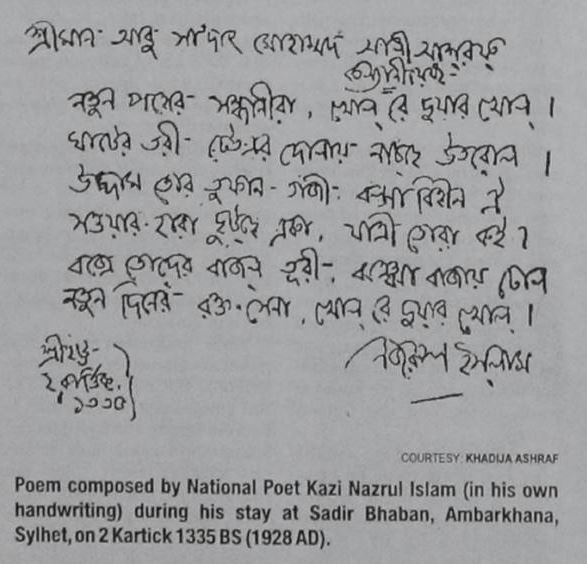 শ্রীমান আবু সা'দাৎ মোহাম্মদ আলী আশ্‌রফ্
নতুন পথের সন্ধানীরা, খোল্ রে দুয়ার খোল্।
ঘাটের তরী ঢেউএর দোলায় নাচ্ছে উতরোল।
উদ্দাম তোর তুফান-তাজী, বল্গা বিহীন ঐ
সওয়ার-হারা ছুট্‌ছে একা, যাত্রী তোরা কই?
বজ্রে তোদের বাজল্ তূরী, ঝঞ্ঝা বাজায় ঢোল
নতুন দিনের রক্ত-সেনা, খোল্ রে দুয়ার খোল্।
শ্রীহট্ট
২ কার্ত্তিক,
১৩৩৫
নজরুল ইসলাম
COURTESY: KHADIJA ASHRAF
Poem composed by National Poet Kazi Nazrul Islam (in his own
handwriting) during his stay at Sadir Bhaban, Ambarkhana,
Sylhet, on 2 Kartick 1335 BS (1928 AD).